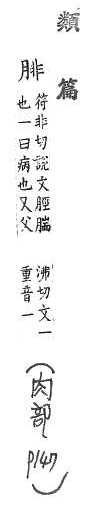 類篇
腓
符非切說文脛腨
也一曰病也又父
沸切文一
重音一
(肉部
P147)